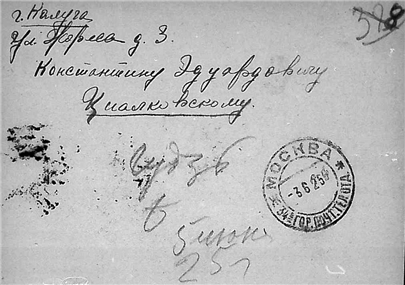 г. Калуга
ул Жореса д. 3.
Константину Эдуардовичу
Циалковскому.
МОСКВА
-3 6 25
34 ГОР. ПОЧТ. ТЕЛ. ОТД.
5 июн
25